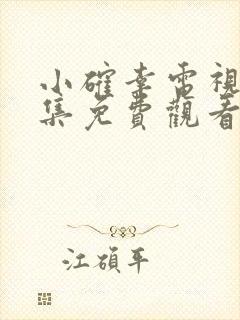 小確幸電視
集免費觀看
江碩平